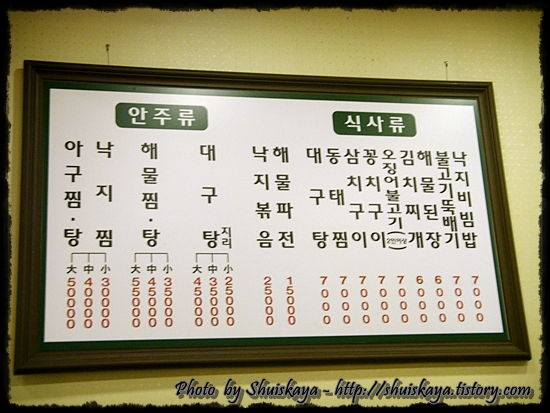 안주류
아구찜·탕
낙지찜
大 中 小
50000 40000 30000
해물찜·탕
大 中 小
55000 45000 35000
대구탕 지리
大 中 小
45000 35000 25000
낙지볶음
25000
해물파전
15000
식사류
대구탕
7000
동태찜
7000
삼치구이
꽁치구이
7000
오징어불고기
2인이상
7000
김치찌개
6000
해물된장
6000
불고기뚝배기
7000
낙지비빔밥
7000
Photo by Shuiskaya - http://shuiskaya.tistory.com